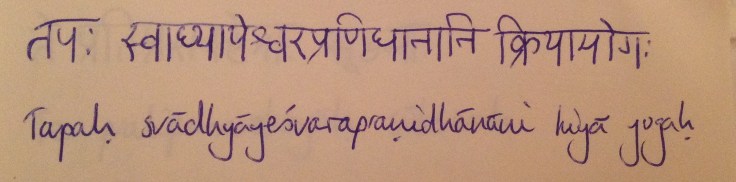 तपः स्वाध्यायेश्वरप्रणिधानानि क्रियायोगः
Tapaḥ svādhyāyeśvarapraṇidhānāni kriyā yogaḥ